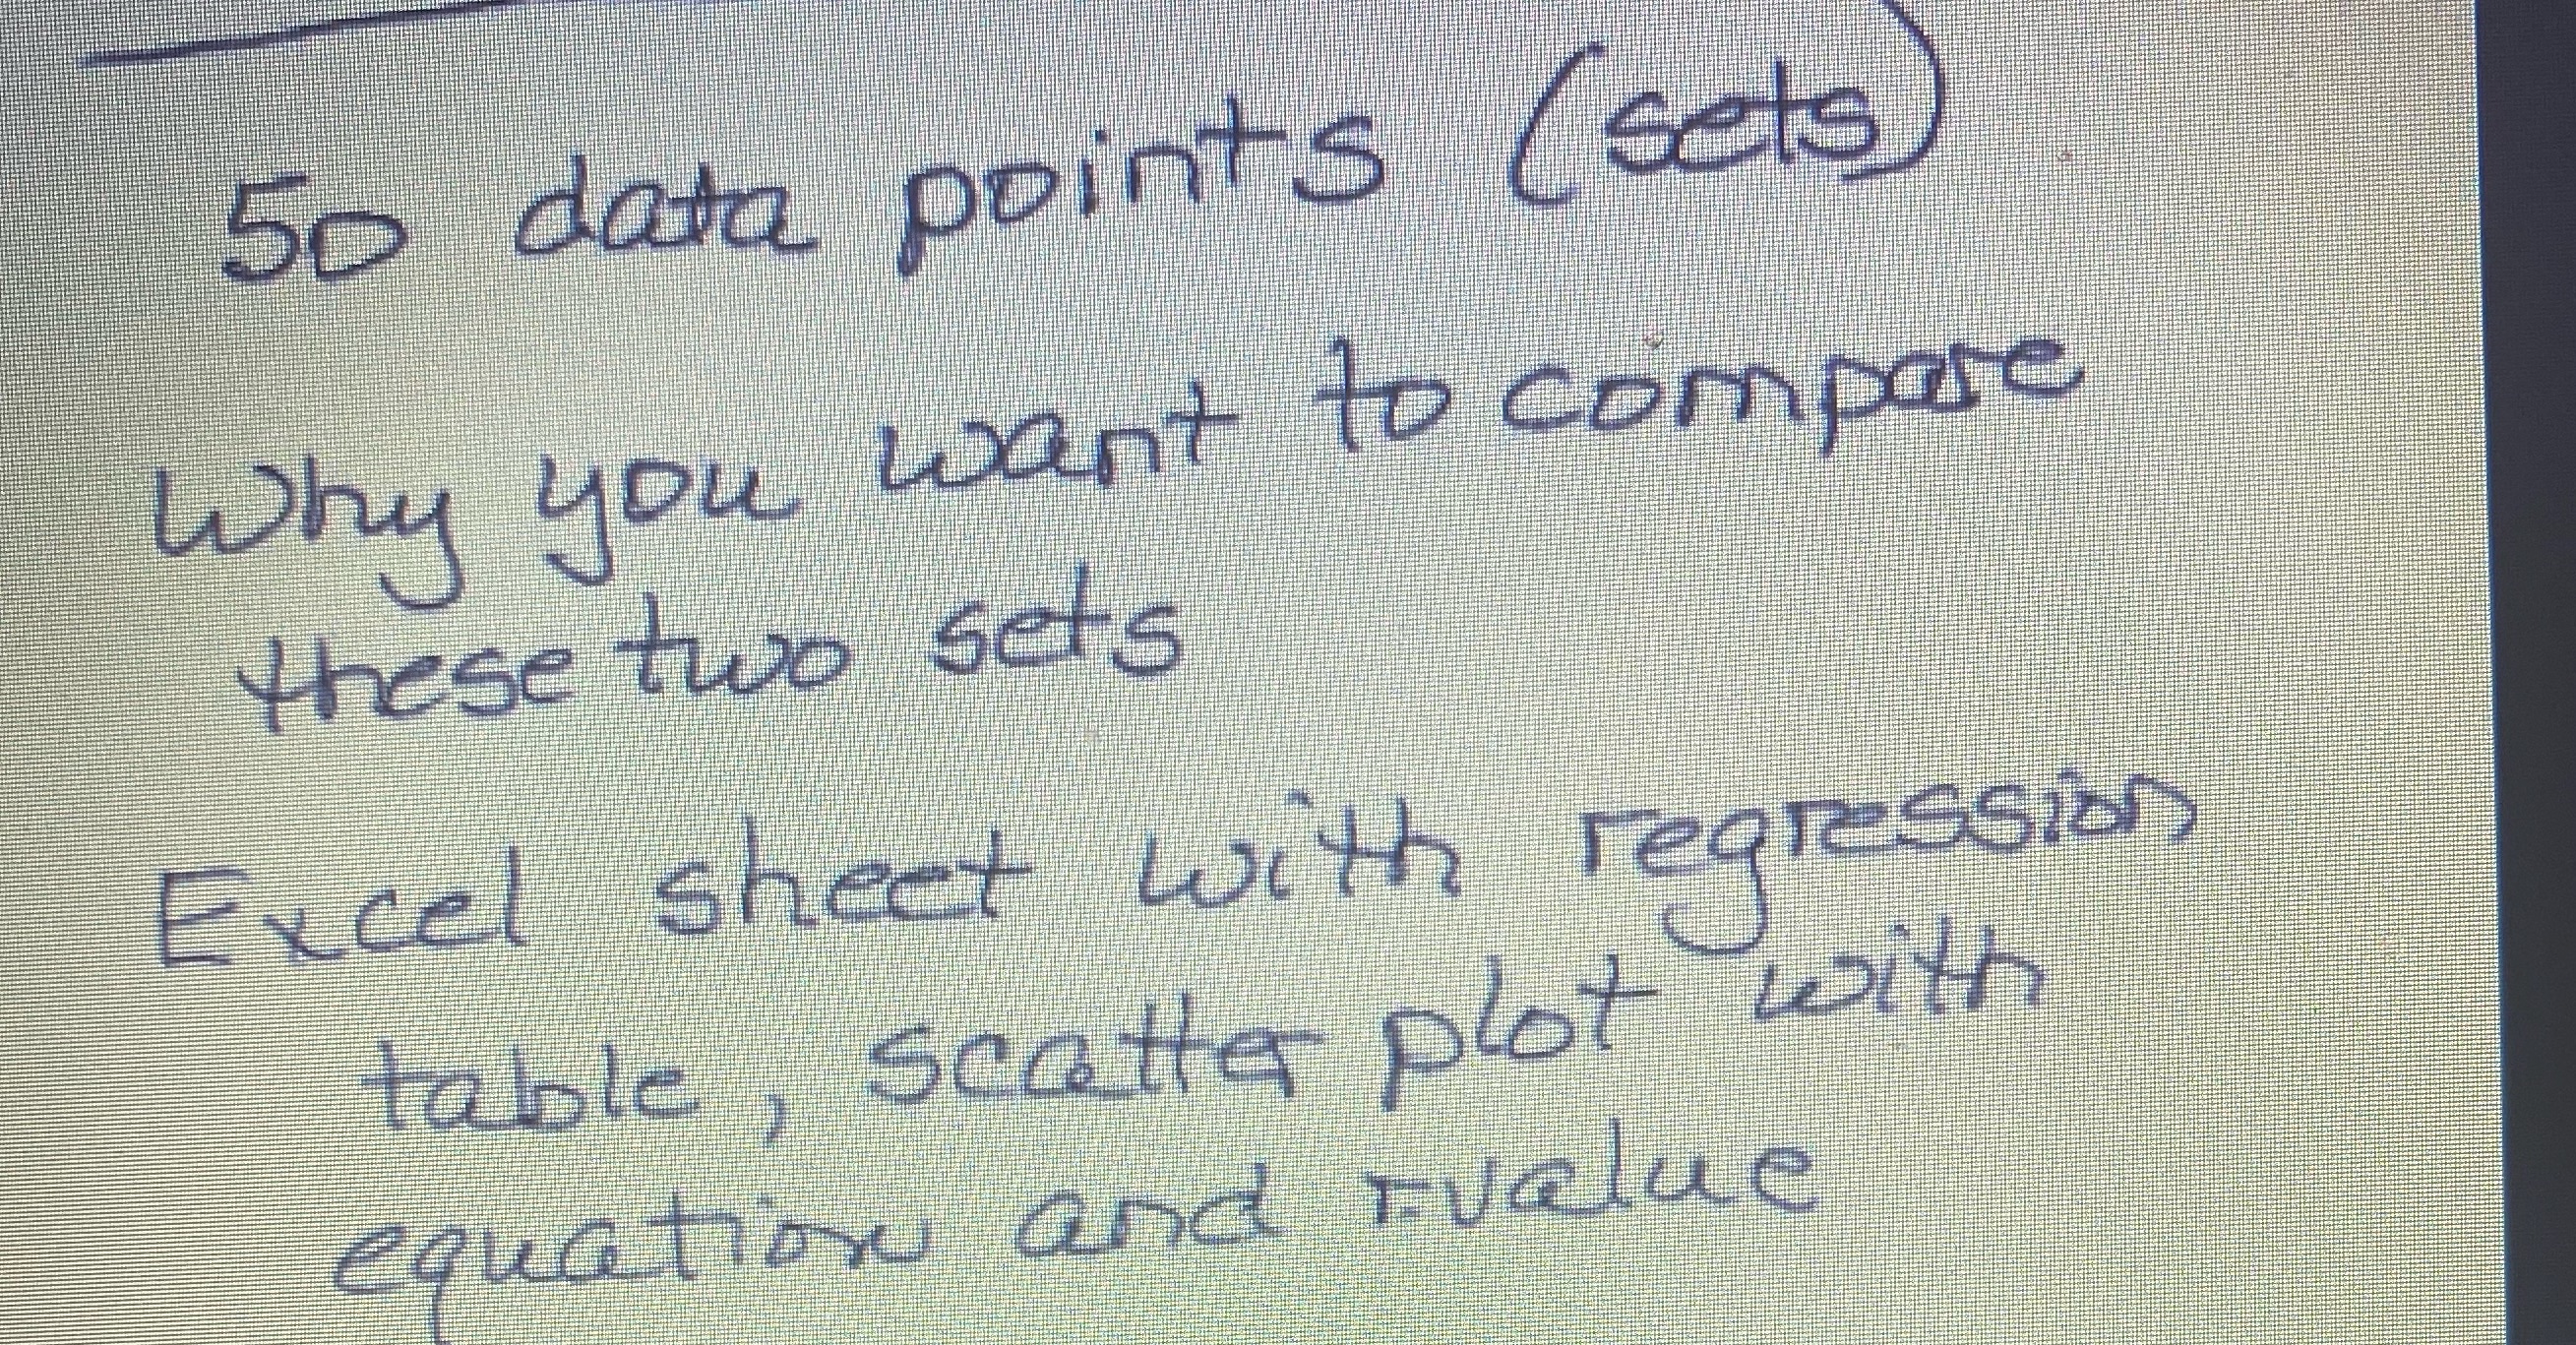 50 data points (sets)
Why you want to compare
these two sets
Excel sheet with regression
table, scatter plot with
equation and rvalue